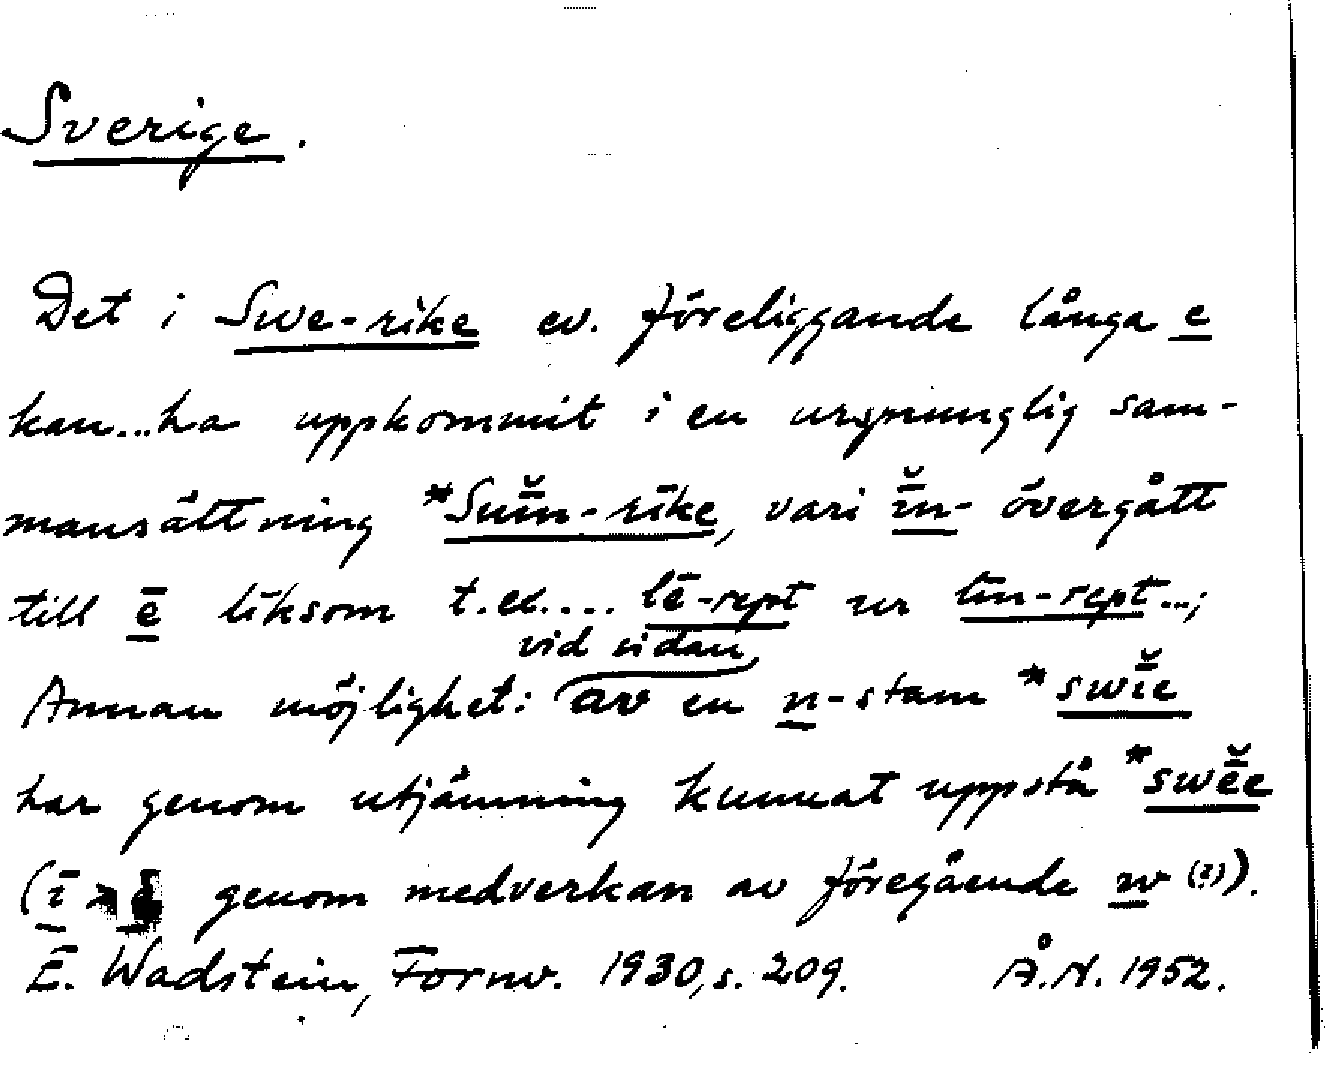 Sverige.
Det i Swe-rike ev. föreliggande långa e
kan...ha uppkommit i en ursprunglig sam-
mansättning *Swī̆n-rīke, vari ī̆n- övergått
till ē liksom t.ex.... lē-rept ur līn-rept...;
vid sidan
Annan möjlighet: av en n-stam *swī̆e
har genom utjämning kunnat uppstå *swē̆e
(ī > genom medverkan av föregående w (?)).
E. Wadstein, Fornv. 1930, s. 209. Å.N. 1952.